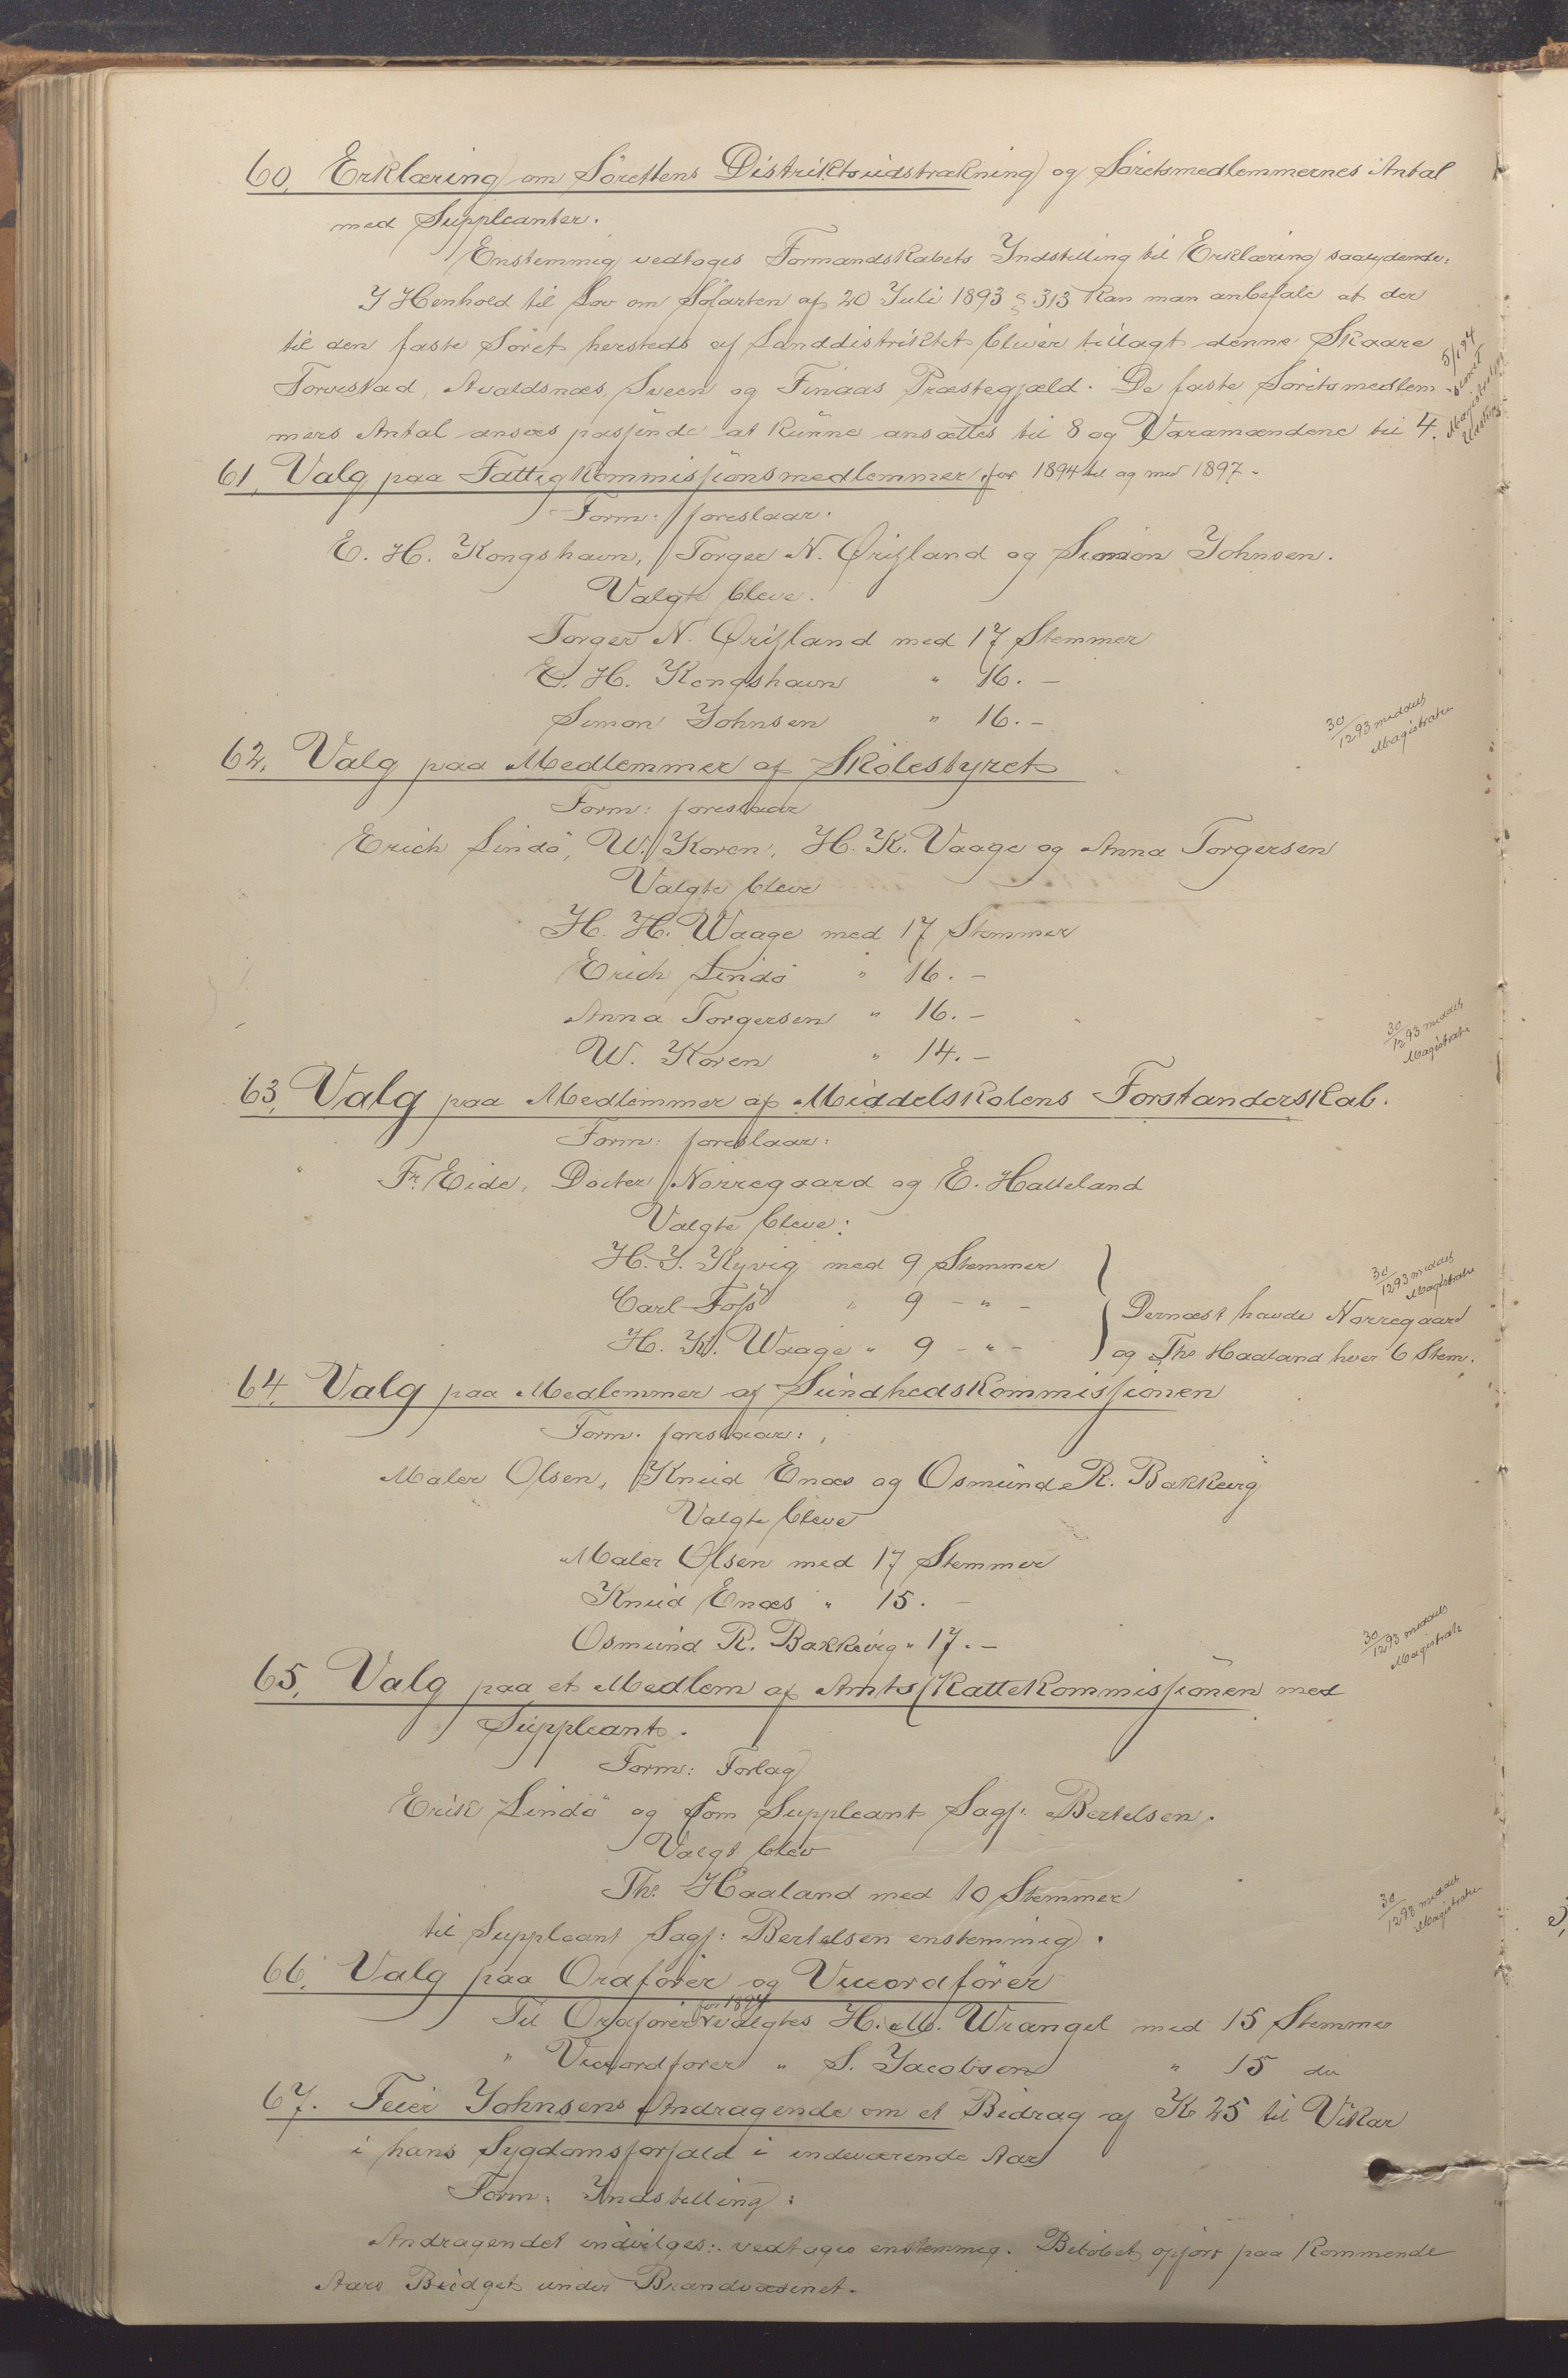 60, Erklæring om Sörettens Distriktsudstrækning og Söretsmedlemmernes Antal
med Suppleanter.
Enstemmig vedtages Formandskabets Indstilling til Erklæring saalydende:
I Henhold til Lov om Söfarten af 20 Juli 1893 § 313 kan man anbefale at der
til den faste Söret hersteds af Landdistriktet bliver tillagt denne Skaare
Torvestad, Avaldsnæs, Sveen og Finaas Præstegjæld. De faste Söretsmedlem
mers Antal ansees passende at kunne ansættes til 8 og Varamændene til 4.
5/1 94
Magistraten
61, Valg paa Fattigkommissionsmedlemmer for 1894 til og med 1897.
Form: foreslaar:
E. H. Kongshavn, Torger N. Örizland og Simon Johnsen.
Valgte bleve.
Torger N. Örizland med 17 Stemmer
E. H. Kongshavn " 16. –
Simon Johnsen " 16. –
30/12 93 meddelt
Magistraten
62, Valg paa Medlemmer af Skolestyret
Form: foreslaar
Erich Lindö, W. Koren, H. K. Vaage og Anna Torgersen
Valgte bleve
H. H. Waage med 17 Stemmer
Erich Lindö " 16. –
Anna Torgersen " 16. –
W. Koren " 14. –
30/12 93 meddelt
Magistrate
63, Valg paa Medlemmer af Middelskolens Forstanderskab.
Form: foreslaar:
Fr. Eide, Docter Nörregaard og E. Hatteland
Valgte bleve:
H. J. Kyvig med 9 Stemmer
Carl Foss " 9 – " –
H. K. Waage " 9 – " –
Dernæst havde Norregaard
og Ths Haaland hver 6 Stem.
30/12 93 meddelt
Magistrate
64, Valg paa Medlemmer af Sundhedskommissionen
Form. foreslaar:
Maler Olsen, Knud Enæs og Osmund R. Bakkevig
Valgte bleve
Maler Olsen med 17 Stemmer
Knud Enæs " 15. –
Osmund R. Bakkevig " 17. –
30/12 93 meddelt
Magistrate
65, Valg paa et Medlem af Amtsskattekommissionen med
Suppleant.
Form: Forlag
Erik Lindö og som Suppleant Sagf: Bertelsen.
Valgt blev
Ths. Haaland med 10 Stemmer
til Suppleant Sagf: Bertelsen enstemmig.
30/12 93 meddelt
Magistraten
66, Valg paa Ordförer og Viceordförer
Til Ordförer for 1894 valgtes H. M. Wrangel med 15 Stemmer
" Viceordförer " S. Jacobsen " 15 do
67. Feier Johnsens Andragende om et Bidrag af K 25 til Vikar
i hans Sygdomsforfald i indeværende Aar
Form: Indstilling:
Andragendet indvilges: vedtages enstemmig. Belöbet opföres paa Kommende
Aars Budget under Brandvæsenet.